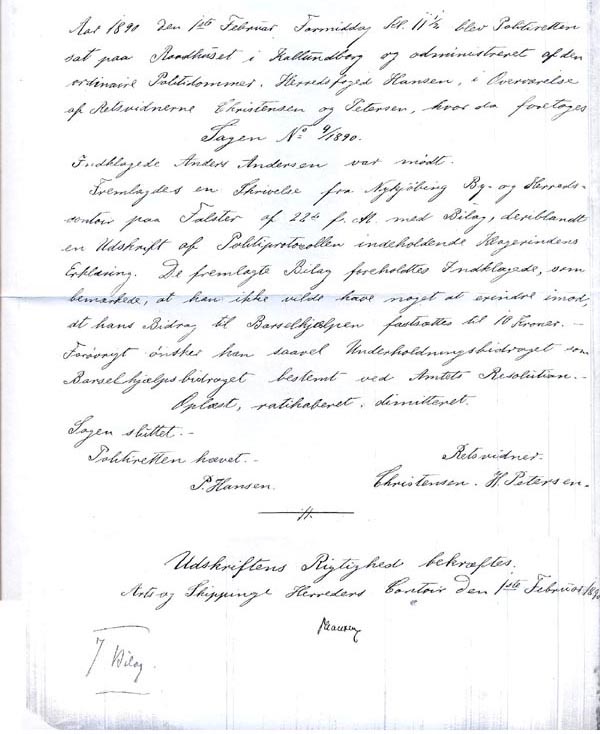 Aar 1890 den 1ste Februar Formiddag Kl. 11½ blev Politiretten
sat paa Raadhuset i Kallundborg og administreret af den
ordinaire Politidommer, Herredsfoged Hansen, i Overværelse
af Retsvidnerne Christensen og Petersen, hvor da foretoges
Sagen No 9/1890.
Indklagede Anders Andersen var mødt.
Fremlagdes en Skrivelse fra Nykjöbing By- og Herreds-
contoir paa Falster af 22de f. M. med Bilag, deriblandt
en Udskrift af Politiprotocollen indeholdende Klagerindens
Erklæring. De fremlagte Bilag foreholdtes Indklagede, som
bemærkede, at han ikke vilde have noget at erindre imod,
at hans Bidrag til Barselhjælpen fastsattes til 10 Kroner.-
Forøvrigt ønsker han saavel Underholdningsbidraget som
Barselhjælpsbidraget bestemt ved Amtets Resolution.-
Oplæst, ratihaberet. dimitteret.
Sagen sluttet.-
Politiretten hævet.-
P. Hansen.
Retsvidner.
Christensen. H. Petersen.-
Udskriftens Rigtighed bekræftes.
Arts og Skippinge Herreders Contoir den 1ste Februar 1890
7 Bilag